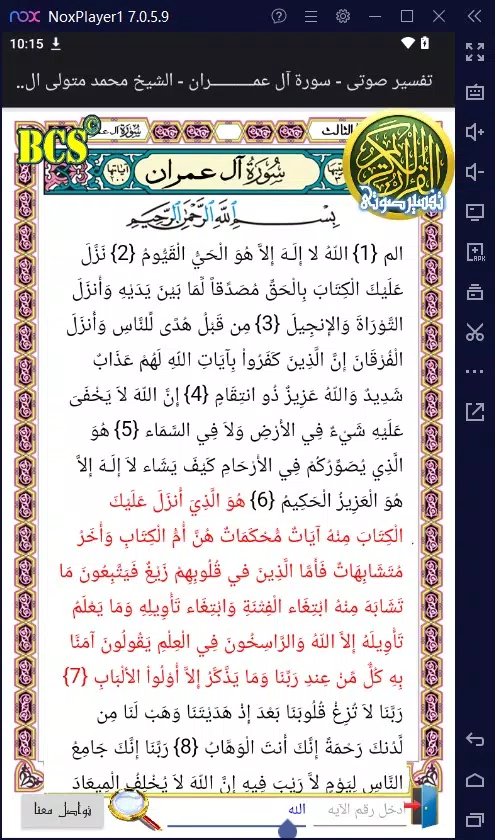 NoxPlayer1 7.0.5.9
10:15
تفسير صوتى - سورة آل عمـــــــران - الشيخ محمد متولى ال..
BCS©
سورة آل عمران
الثالث
القرآن الكريم
تفسير صوتى
آياتها ٢٠٠
سُورَةُ آل عمران
بِسْمِ اللَّهِ الرَّحْمَنِ الرَّحِيمِ
الم {1} اللّهُ لا إِلَـهَ إِلاَّ هُوَ الْحَيُّ الْقَيُّومُ {2} نَزَّلَ
عَلَيْكَ الْكِتَابَ بِالْحَقِّ مُصَدِّقاً لِّمَا بَيْنَ يَدَيْهِ وَأَنزَلَ
التَّوْرَاةَ وَالإِنجِيلَ {3} مِن قَبْلُ هُدًى لِّلنَّاسِ وَأَنزَلَ
الْفُرْقَانَ إِنَّ الَّذِينَ كَفَرُواْ بِآيَاتِ اللّهِ لَهُمْ عَذَابٌ
شَدِيدٌ وَاللّهُ عَزِيزٌ ذُو انتِقَامٍ {4} إِنَّ اللّهَ لاَ يَخْفَىَ
عَلَيْهِ شَيْءٌ فِي الأَرْضِ وَلاَ فِي السَّمَاء {5} هُوَ
الَّذِي يُصَوِّرُكُمْ فِي الأَرْحَامِ كَيْفَ يَشَاء لاَ إِلَـهَ إِلاَّ
هُوَ الْعَزِيزُ الْحَكِيمُ {6} هُوَ الَّذِيَ أَنزَلَ عَلَيْكَ
الْكِتَابَ مِنْهُ آيَاتٌ مُّحْكَمَاتٌ هُنَّ أُمُّ الْكِتَابِ وَأُخَرُ
مُتَشَابِهَاتٌ فَأَمَّا الَّذِينَ في قُلُوبِهِمْ زَيْغٌ فَيَتَّبِعُونَ مَا
تَشَابَهَ مِنْهُ ابْتِغَاء الْفِتْنَةِ وَابْتِغَاء تَأْوِيلِهِ وَمَا يَعْلَمُ
تَأْوِيلَهُ إِلاَّ اللّهُ وَالرَّاسِخُونَ فِي الْعِلْمِ يَقُولُونَ آمَنَّا
بِهِ كُلٌّ مِّنْ عِندِ رَبِّنَا وَمَا يَذَّكَّرُ إِلاَّ أُوْلُواْ الألْبَابِ {7}
رَبَّنَا لاَ تُزِغْ قُلُوبَنَا بَعْدَ إِذْ هَدَيْتَنَا وَهَبْ لَنَا مِن
لَّدُنكَ رَحْمَةً إِنَّكَ أَنتَ الْوَهَّابُ {8} رَبَّنَا إِنَّكَ جَامِعُ
النَّاسِ لِيَوْمٍ لاَّ رَيْبَ فِيهِ إِنَّ اللّهَ لاَ يُخْلِفُ الْمِيعَادَ
ادخل رقم الآيه
الله
تواصل معنا